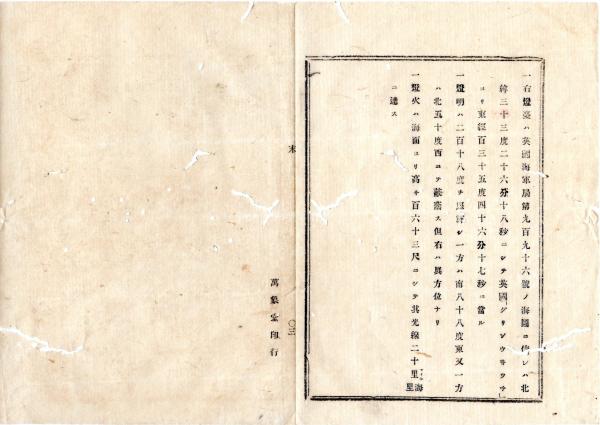 一右燈臺ハ英國海軍局第九百九十六號ノ海圖ニ依レハ北
緯三十三度二十六分十八秒ニシテ英國「グリンウヰツチ」
ヨリ東經百三十五度四十六分十七秒ニ當ル
一燈明ハ二百十八度ヲ照シ一方ハ南八十八度東又一方
ハ北五十度西ニテ蔽ス但右ハ眞方位ナリ
一燈火ハ海面ヨリ高キ百六十三尺ニシテ其光線二十里海里
ニ達ス
末
〇三
萬象堂印行